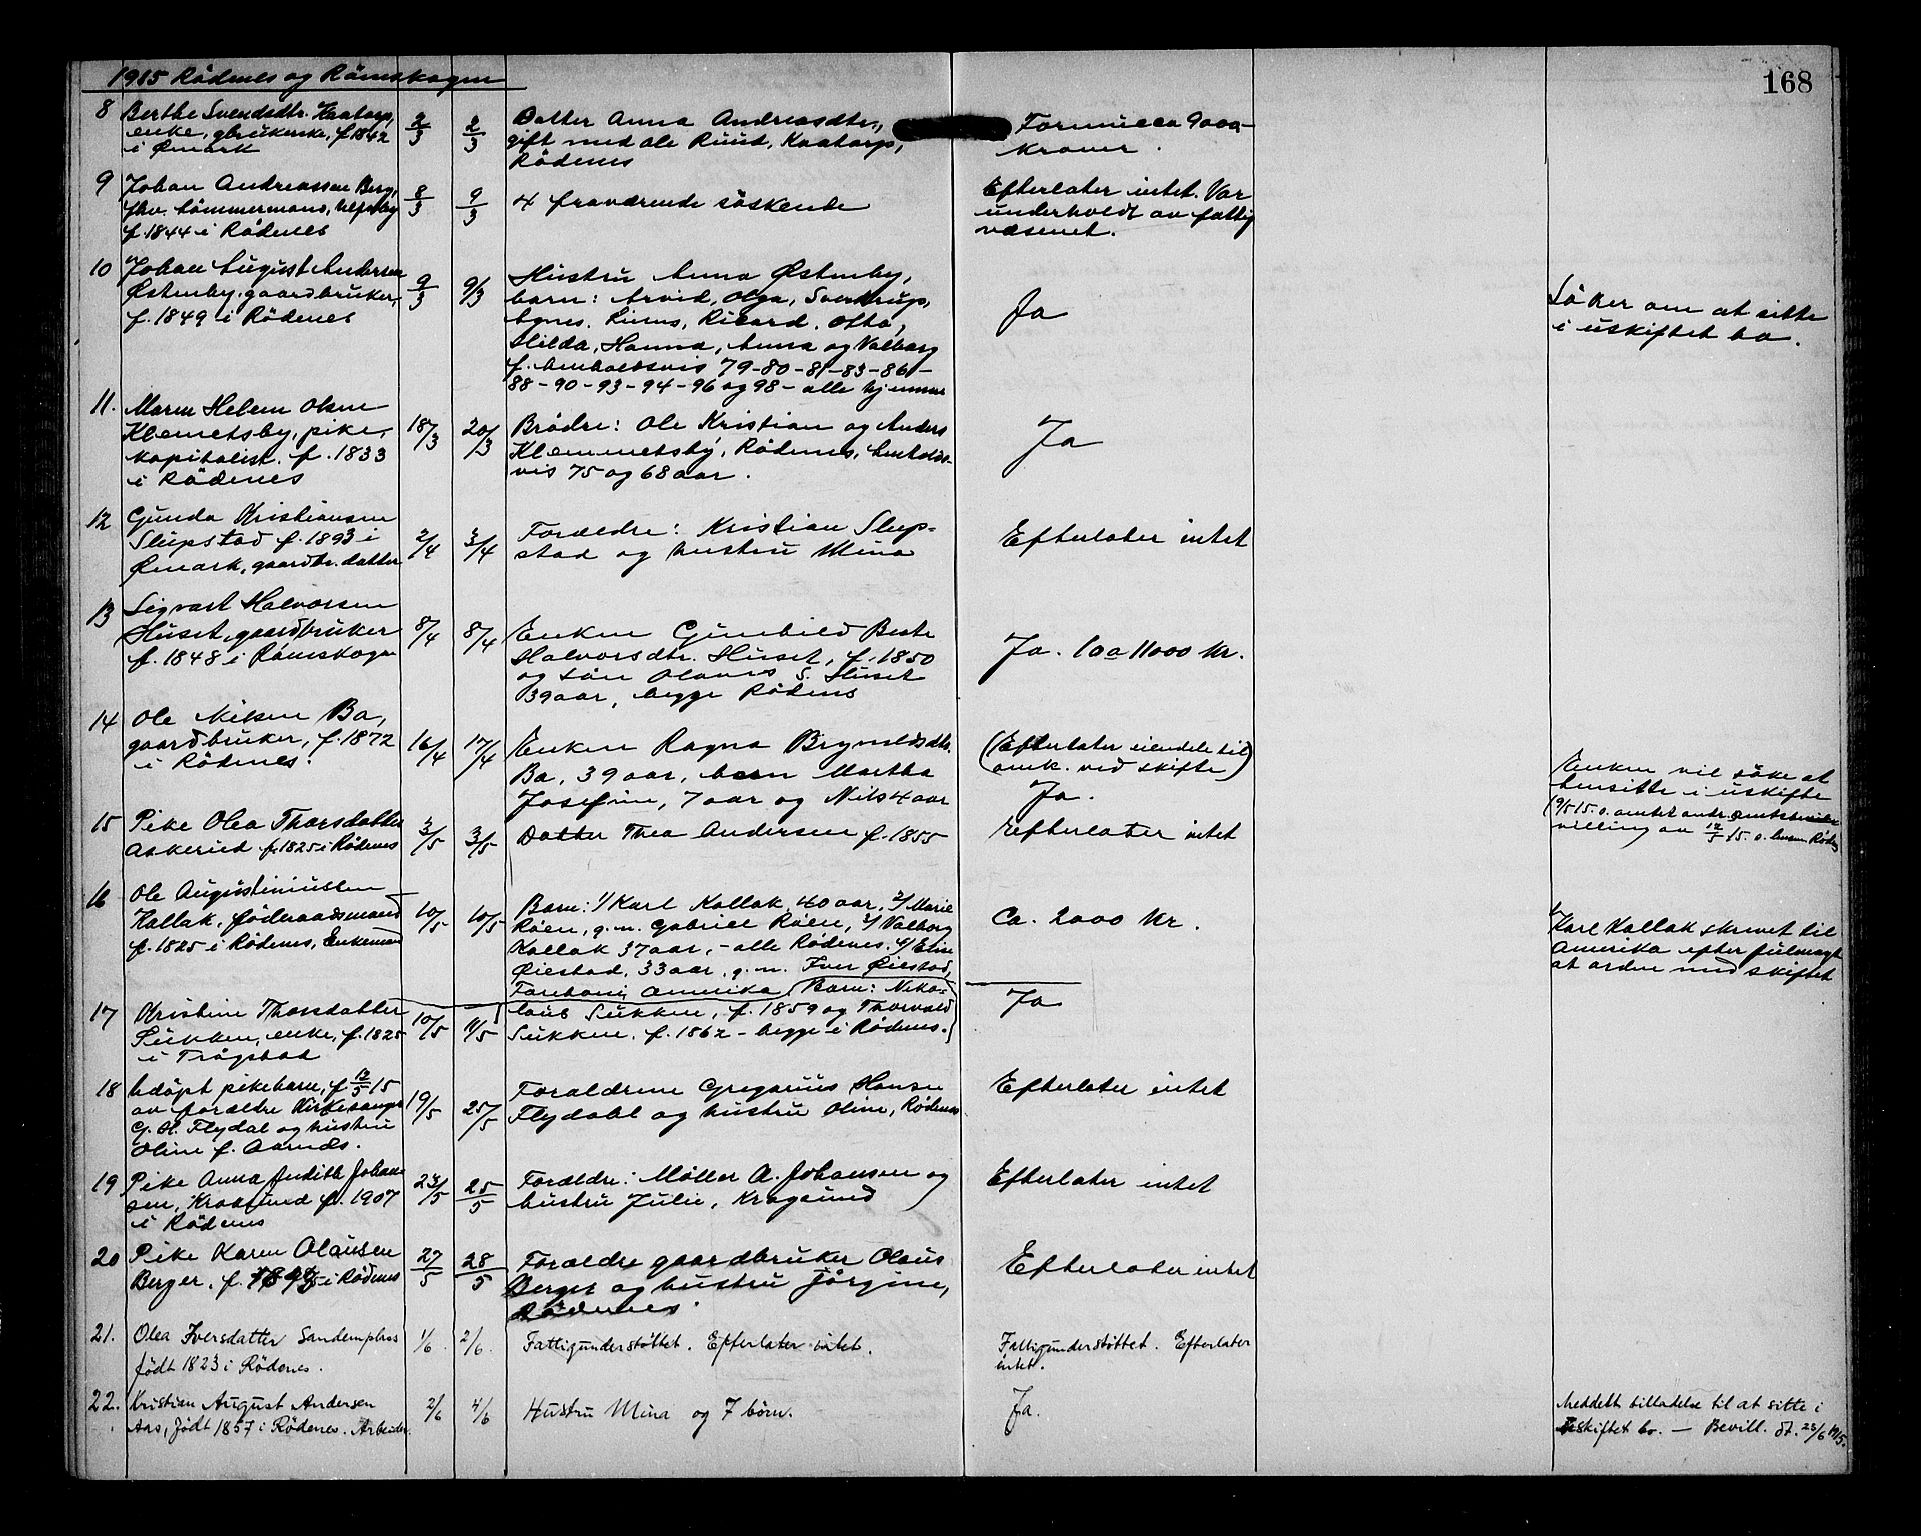 1915 Rödenes og Römskogen
168
8 Berthe Svendsdtr. Kaatorp,
enke, gbrukerske, f. 1842
i Ømark
2/3 2/3
Datter Anna Andreasdtr.,
gift med Ole Ruud, Kaatorp,
Rödenes
Formue ca 9000
kroner.
9 Johan Andreassen Berg,
fhv. tömmermand, ulfsby
f. 1844 i Rödenes
8/3 9/3
4 fraværende söskende
Efterlater intet. Var
underholdt av fattig
væsenet.
10 Johan August Andersen
Østenby, gaardbruker,
f. 1849 i Rödenes
9/3 9/3
Hustru Anna Østenby,
barn: Arvid, Olga, Sverdrup,
Agnes, Rinus, Ricard, Otto,
Hilda, Hanna, Anna og Valborg
f. henholdsvis 79-80-81-83-86-
88-90-93-94-96 og 98 - alle hjemme
Ja
Söker om at sitte
i uskiftet bo.
11. Maren Helene Olsen
Klemetsby, pike,
kapitalist. f. 1833
i Rödenes
18/3 20/3
Brödre: Ole Kristian og Anders
Klemmetsby, Rödenes, henholds-
vis 75 og 68 aar.
Ja
12 Gunda Kristiansen
Slupstad f. 1893 i
Ømark, gaardbr. datter
2/4 3/4
Forældre: Kristian Slup-
stad og hustru Mina
Efterlater intet
13 Sigvart Halvorsen
Huset, gaardbruker
f. 1848 i Römskogen
8/4 8/4
Enken Gunhild Beate
Halvorsdtr. Huset, f. 1850
og sön Olavus S. Huset
39 aar, begge Rödenes
Ja. 10 a 11000 kr.
14 Ole Nilsen Bö,
gaardbruker, f. 1872
i Rödenes.
16/4 17/4
Enken Ragna Brynildsdtr.
Bö, 39 aar, barn Martha
Josefine, 7 aar og Nils 4 aar
(Efterlater eiendele til
omk. ved skifte)
Ja.
Enken vil söke at
hensitte i uskifte
villing av 12/5 15. o. lensm. Röde
15 Pike Olea Thorsdatter
Aakerud f. 1825 i Rödenes
3/5 3/5
Datter Thea Andersen f. 1855
Efterlater intet
16 Ole Augustiniussen
Kallak, föderaadsmand
f. 1825 i Rödenes, Enkemand
10/5 10/5
Barn: 1/ Karl Kallak, 40 aar, 2/ Marie
Röen, g.m. Gabriel Röen, 3/ Valborg
Kallak 37 aar, - alle Rödenes. 4/ Elin
Øiestad, 33 aar, g.m. Iver Øiestad,
Amerika
Ca. 2000 kr.
Karl Kallak skrevet til
Amerika efter fulmagt
at orden med skiftet
17 Kristine Thorsdatter
Sukken, enke, f. 1825
i Trögstad
10/5 11/5
Barn: Niko-
laus Sukken, f. 1859 og Thorvald
Sukken, f. 1862 - begge i Rödenes.
Ja
18 Udöpt pikebarn, f. 12/5 15
av forældre Kirkesanger
G. H. Flydal og hustru
Oline f. Aamds.
19/5 25/5
Forældrene Gregorius Hansen
Flydahl og hustru Oline, Rödenes
Efterlater intet
19 Pike Anna Judith Johan-
sen, Kroksund f. 1907
i Rödenes
23/5 25/5
Forældre: Möller A. Johansen og
hustru Julie, Krogsund
Efterlater intet
20 Pike Karen Olausen
Berger. f. 1895 i Rödenes
27/5 28/5
Forældre gaardbruker Olaus
Berger og hustru Jörgine,
Rödenes.
Efterlater intet
21. Olea Iversdatter Sandemplass
födt 1823 i Rödenes.
1/6. 2/6.
Fattigunderstöttet. Efterlater intet.
Fattigunderstöttet. Efterlater
intet.
22. Kristian August Andersen
Aas, födt 1857 i Rödenes. Arbeider.
2/6 4/6
Hustru Mina og 7 börn.
Ja.
Meddelt tilladelse til at sitte i
uskiftet bo. - Bevill. dt. 23/6 1915.